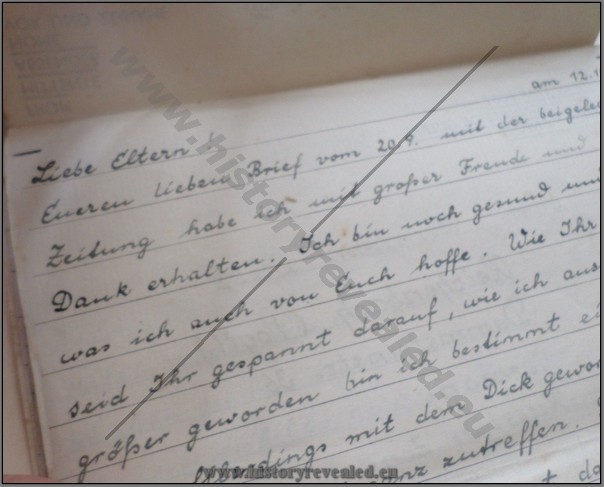 am 12.
Liebe Eltern
Eueren lieben Brief vom 20.9. mit der
Zeitung habe ich mit großer Freude und
Dank erhalten. Ich bin noch gesund und
was ich auch von Euch hoffe. Wie Ihr
seid Ihr gespannt darauf, wie ich aus
größer geworden bin ich bestimmt
allerdings mit dem Dick
zutreffen.
www.historyrevealed.eu
www.historyrevealed.eu